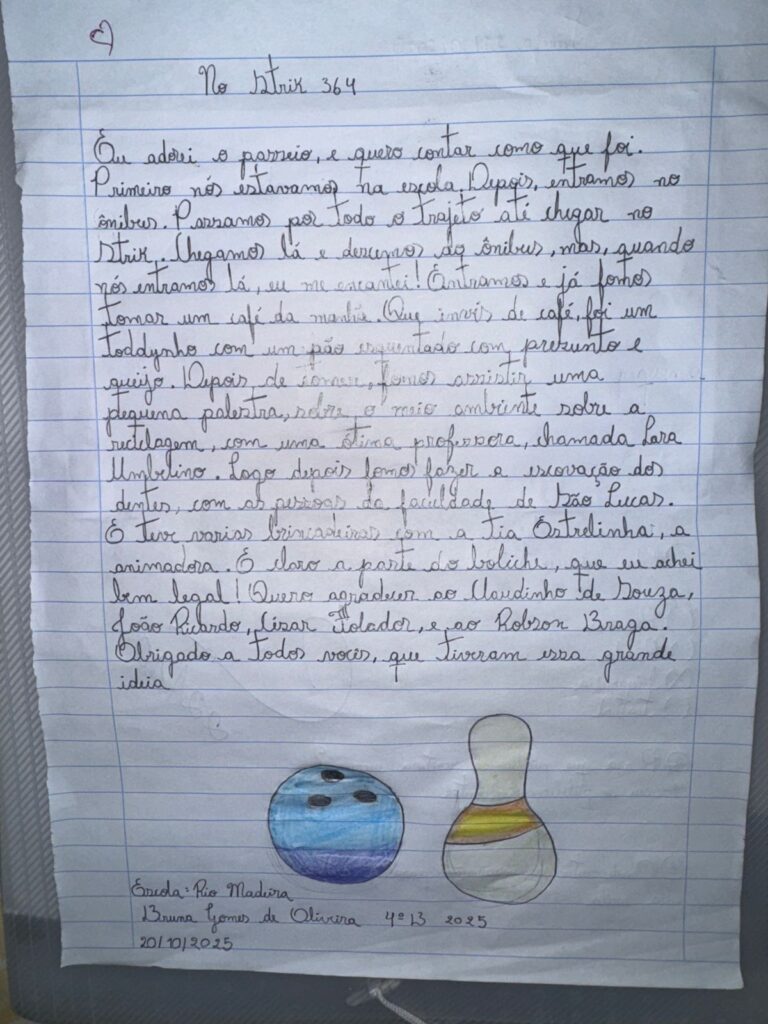 No Strik 364
Eu adorei o passeio, e quero contar como que foi.
Primeiro nós estavamos na escola. Depois, entramos no
ônibus. Passamos por todo o trajeto até chegar no
Strik. Chegamos lá e descemos do ônibus, mas, quando
nós entramos lá, eu me encantei! Entramos e já fomos
tomar um café da manhã. Que invis de café, foi um
toddynho com um pão esquentado com prezunto e
queijo. Depois, de tomar, fomos assistir uma
pequena palestra, sobre, o meio ambiente sobre a
reciclagem, com uma ótima professora, chamada Lara
Umbelino. Logo depois fomos fazer a escovação dos
dentes, com as pessoas da faculdade de São Lucas.
E teve varias brincadeiras com a tia Estrelinha, a
animadora. E claro a parte do boliche, que eu achei
bem legal! Quero agradecer ao Claudinho de Souza,
João Ricardo, Cisar, e ao Robson Braga.
Obrigado a todos voces, que tiveram essa grande
ideia
Escola: Rio Madeira
Bruna Gomes de Oliveira 4º B 2025
20/10/2025